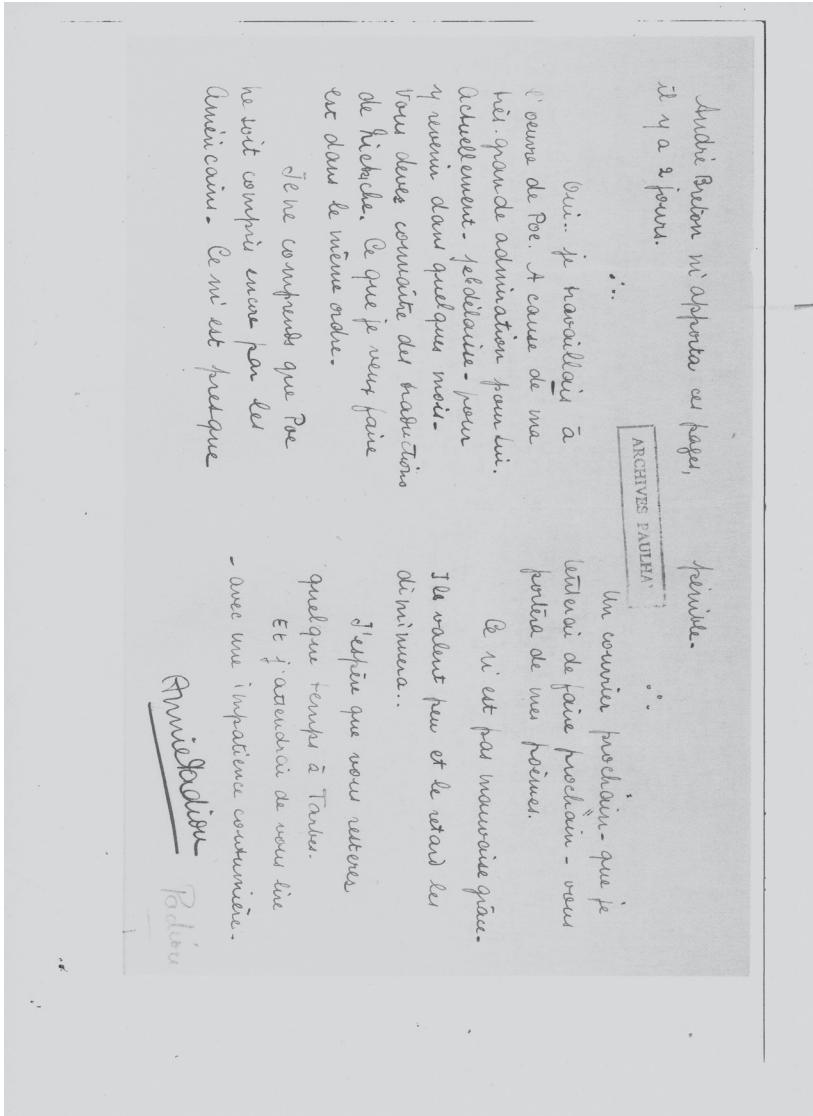 André Breton m'apporta ces pages,
il y a 2 jours.
Oui.. je travaillais à
l'oeuvre de Poe. A cause de ma
très-grande admiration pour lui.
Actuellement - je délaisse - pour
y revenir dans quelques mois -
Vous devez connaître des traductions
de Nietzche. Ce que je veux faire
est dans le même ordre.
Je ne comprends que Poe
ne soit compris encore par les
Américains. Ce m'est presque
pénible.
ARCHIVES PAULHA
Un courrier prochain - que je
tenterai de faire prochain - vous
portera de mes poèmes.
Ce n'est pas mauvaise grâce.
Ils valent peu et le retard les
diminuera..
J'espère que vous resterez
quelque temps à Tarbes.
Et j'attendrai de vous lire
- avec une impatience coutumière.
Annie Padiou
Padiou